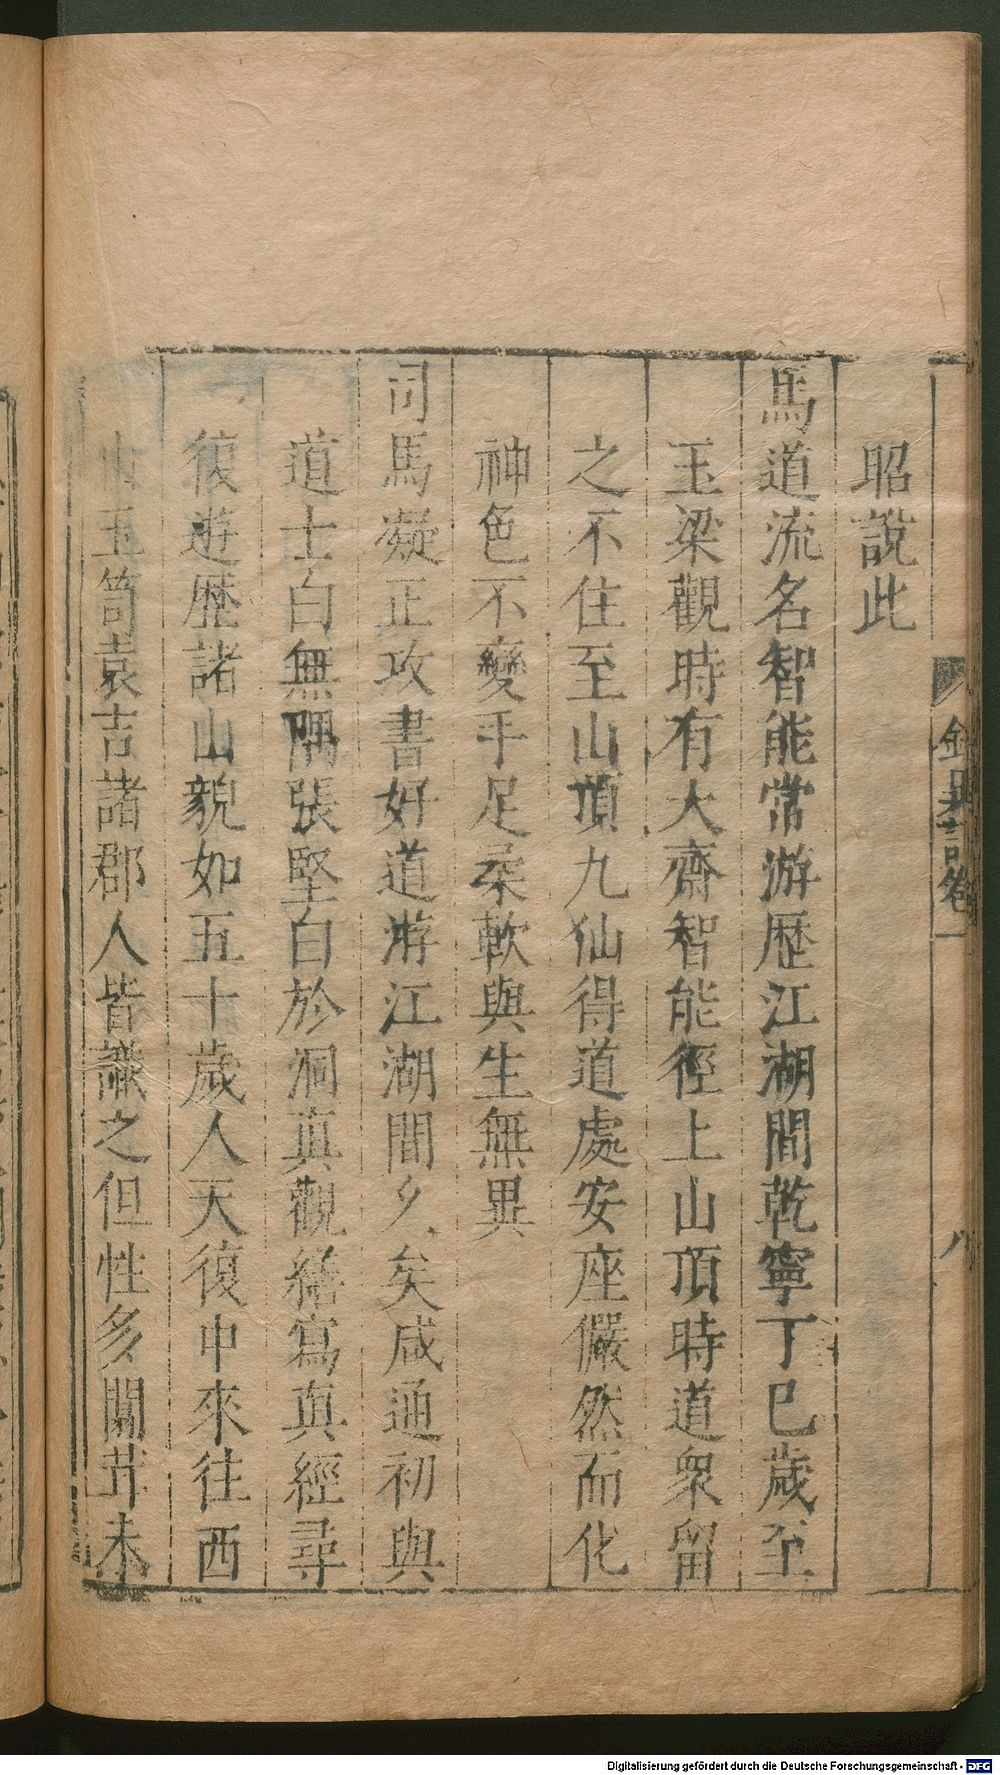 昭說此
馬道流名智能常游歷江湖間乾寧丁巳歲至
玉梁觀時有大齋智能徑上山頂時道衆留
之不住至山頂九仙得道處安座儼然而化
神色不變手足柔軟與生無異
司馬凝正攻書好道游江湖間久矣咸通初與
道士白無隅張堅白於洞真觀繕寫真經尋
復遊歷諸山貌如五十歲人天復中來往西
山玉笥袁吉諸郡人皆識之但性多闒茸未
卷一
八
Digitalisierung gefördert durch die Deutsche Forschungsgemeinschaft - DFG